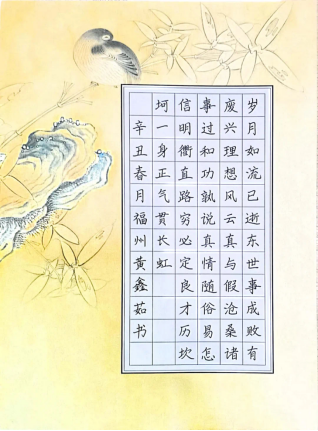 岁月如流已逝东世事成败有
废兴理想风云真与假沧桑诸
事过和功孰说真情随俗易怎
信明衢直路穷必定良才历坎
坷一身正气贯长虹
辛丑春月福州黄鑫茹书